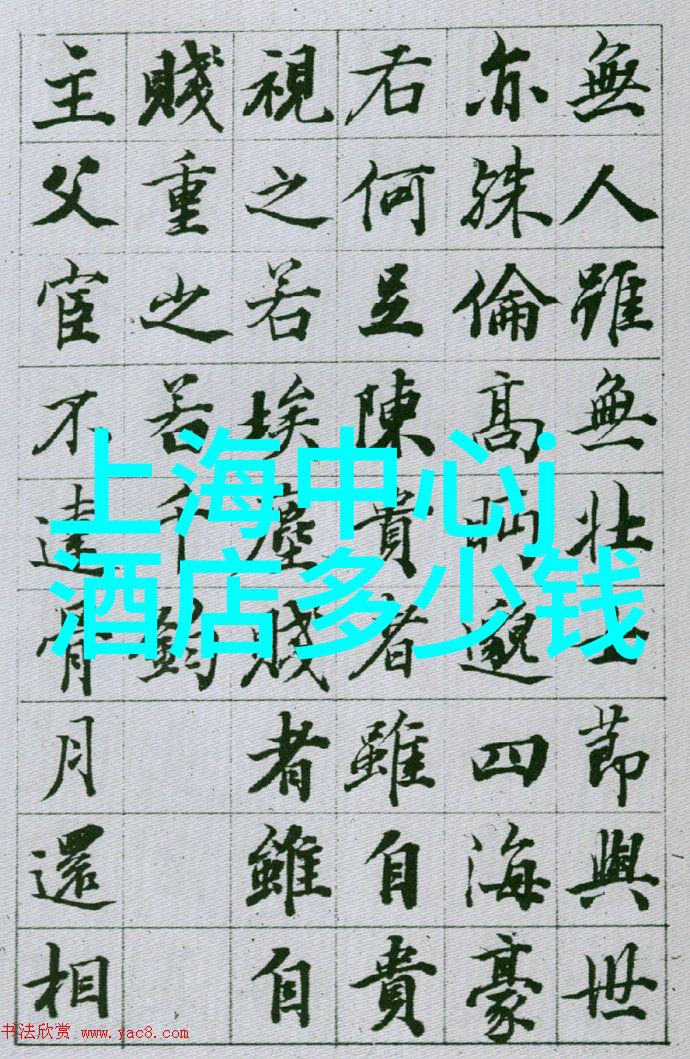 無人雖無壯士節與世
亦殊倫高眄邈四海豪
右何足陳貴者雖自貴
視之若埃塵賤者雖自
賤重之若千鈞
主父宦不達骨月還相
上海中心j
酒店多少钱
书法欣赏 www.yac8.com